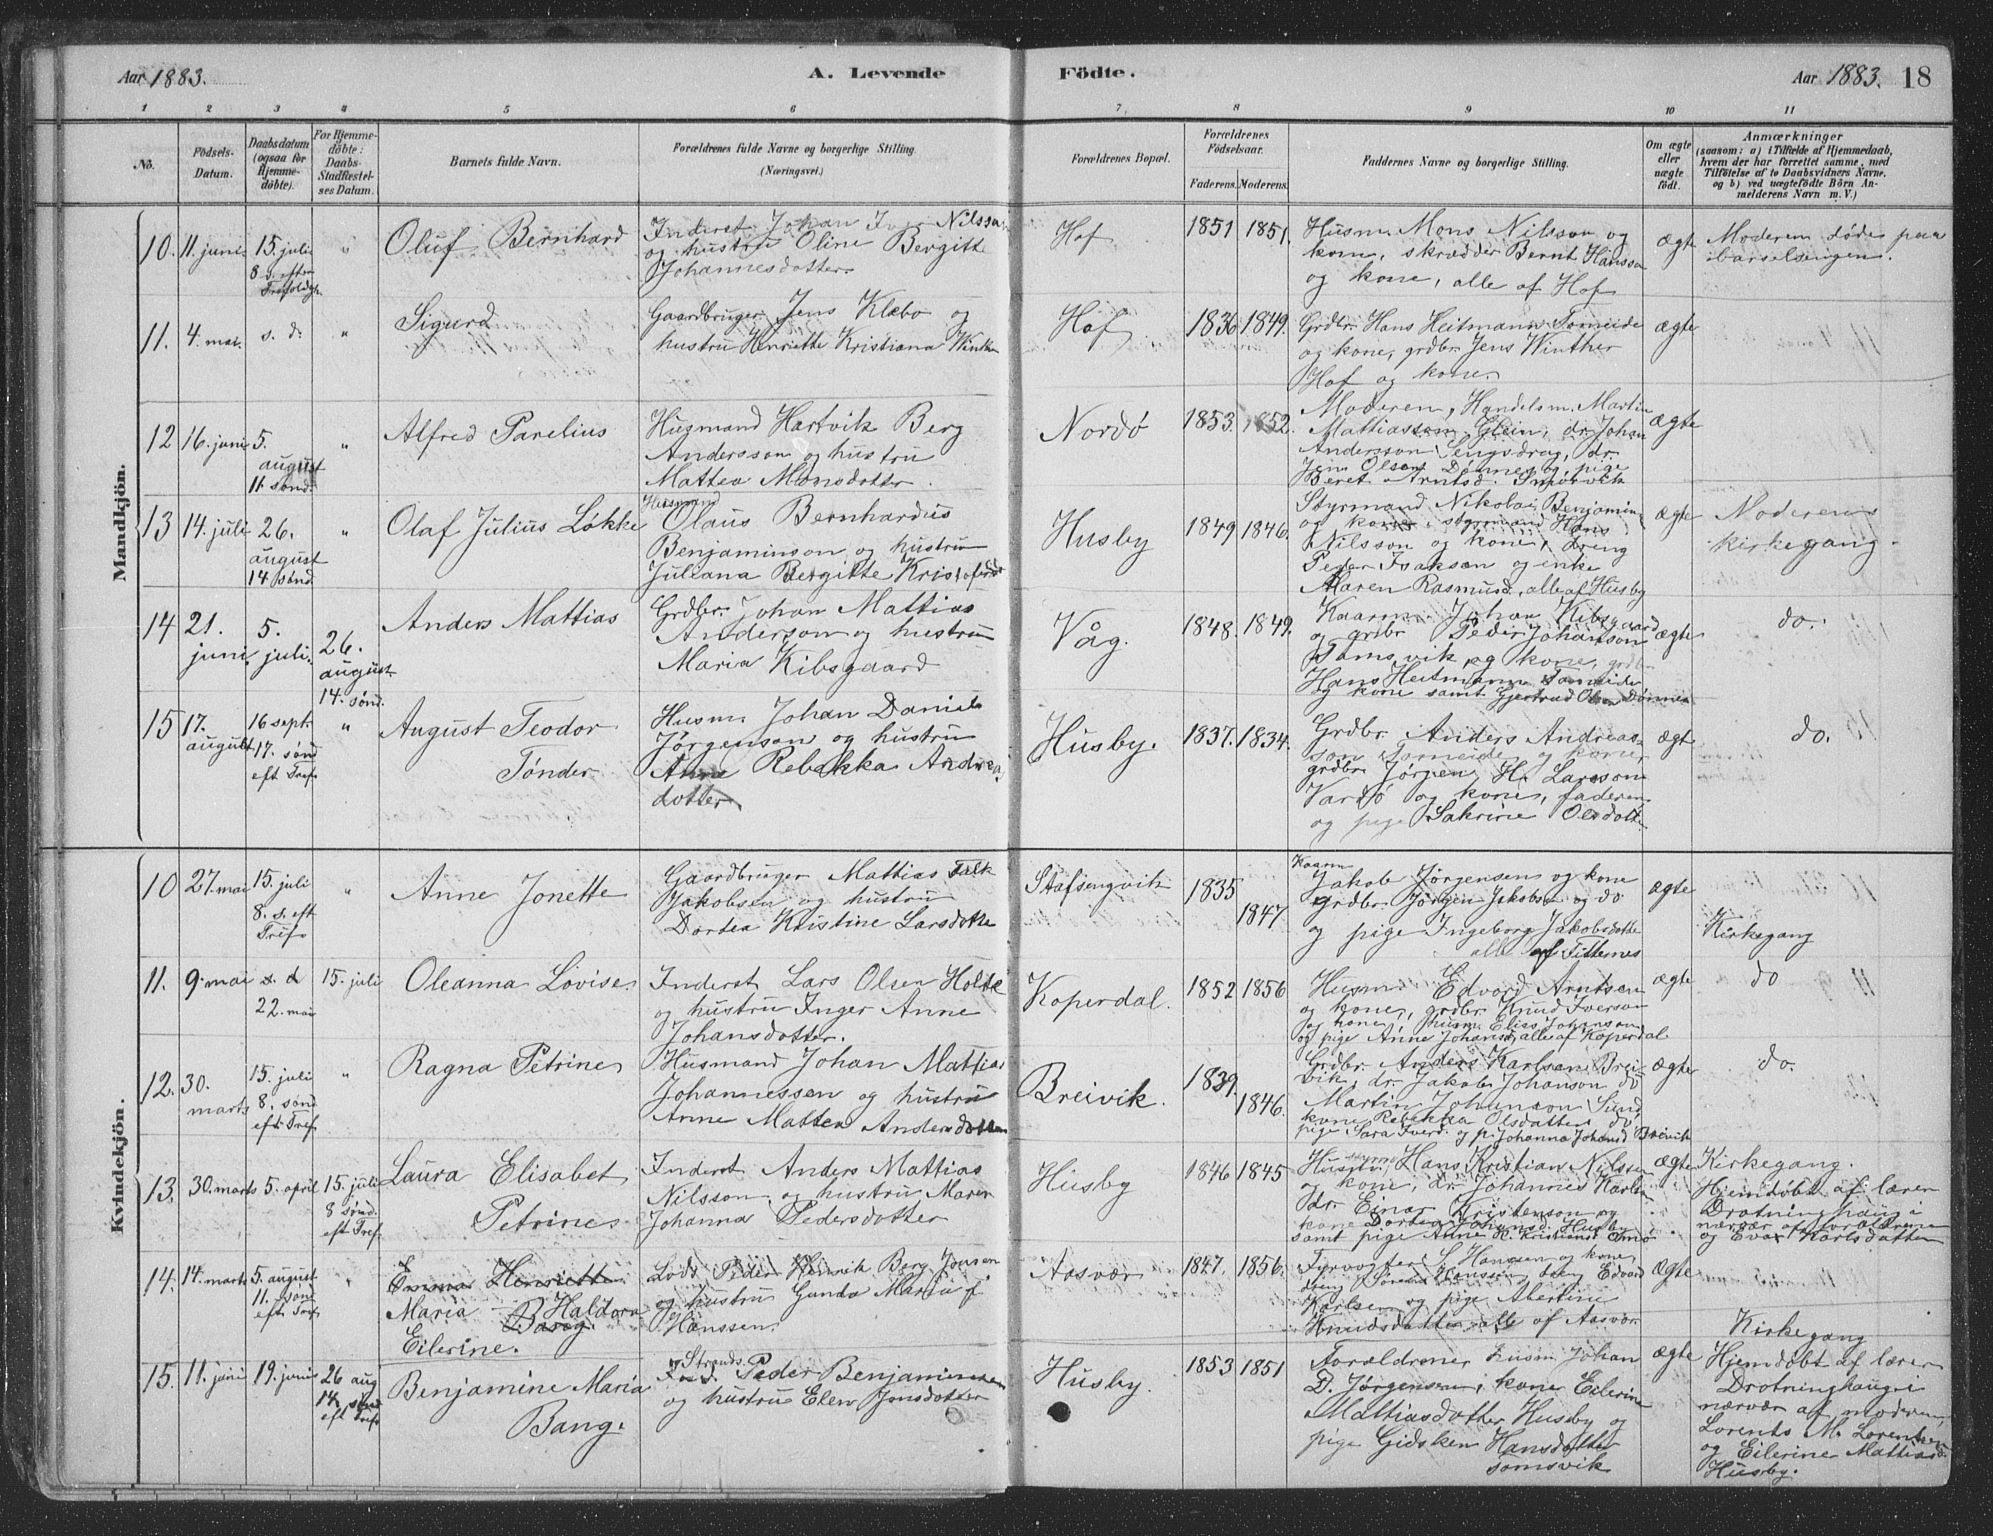 Aar 1883.
A. Levende
Födte.
Aar 1883.
18
1 2 3 4 5 6 7 8 9 10 11
No.
Födsels-
Datum.
Daabsdatum
(ogsaa for
Hjemme-
döbte).
For Hjemme-
döbte:
Daabs-
Stadfæstel-
ses Datum.
Barnets fulde Navn.
Forældrenes fulde Navne og borgerlige Stilling.
(Næringsvei.)
Forældrenes Bopæl.
Forældrenes
Födselsaar.
Faderens. Moderens.
Faddernes Navne og borgerlige Stilling.
Om ægte
eller
uægte
födt.
Anmærkninger
(saasom: a) i Tilfælde af Hjemmedaab,
hvem der har forrettet samme, med
Tilföielse af to Daabsvidners Navne.
og b) ved uægtefödte Börn An-
melderens Navn m. V.)
Mandkjön.
10. 11. juni
15. juli
8 s. eften
Trefoldigh.
"
Oluf Bernhard
Inderst Johan Iver Nilsson
og hustru Oline Bergitte
Johannesdotter
Hof
1851 1851.
Husm. Mons Nilsson og
kone, skrædder Bernt Hansson
og kone, alle af Hof
ægte
Moderen døde paa
barselsengen.
11. 4. mai.
s. d.
"
Sigurd
Gaardbruger Jens Klæbo og
hustru Henriette Kristiana Winther
Hof
1836 1849.
Grdbr. Hans Heitmann Tomeide
og kone, grdbr Jens Winther
Hof og kone.
ægte
12 16. juni
5.
august
11. sønd.
"
Alfred Parelius
Husmand Hartvik Berg
Andersson og hustru
Mattea Monsdotter.
Nordø
1853. 1852.
Moderen, Handelsm. Martin
Mattiassen Glein, dr. Johan
Andersson Sengsdrag, dr.
Jens Olsen Dønnes og pige
Beret Arntsd.
ægte
13 14. juli
26.
august
14 sønd.
"
Olaf Julius Løkke
Husmand
Olaus Bernhardus
Benjaminson og hustru
Juliana Bergitte Kristofersd
Husby
1849 1846.
Styrmand Nikolai Benjamin
og kone, styrmand Hans
Nilsson og kone, dreng
Peder Isaksen og enke
Maren Rasmusd, alle af Husby
ægte
Moderens
kirkegang.
14 21.
juni
5.
juli.
26.
august
14. sønd.
Anders Mattias
Grdbr. Johan Mattias
Anderson og hustru
Maria Kibsgaard
Våg.
1848. 1849.
Kaarm. Johan Kibsgaard
og grdbr Peder Johanson
Tamsvik og kone, grdbr
Hans Heitmann Tomeide
og kone samt Gjertrud Olsen Dønnes
ægte
do.
15 17.
august
16 sept.
17. sønd
eft Tref.
"
August Teodor
Tønder.
Husm. Johan Daniel
Jørgenson og hustru
Anne Rebekka Andrea
dotter.
Husby.
1837. 1834.
Grdbr. Anders Andreas-
son Tomeide og kone,
grdbr Jørgen Hr. Larsson
Vardø og kone, faderen
og pige Sakrine Olsdotter
ægt
do.
Kvindekjön.
10 27. mai
15. juli
8. s. eft
Tref.
"
Anne Jonette
Gaardbruger Mattias Falk
Jakobsen og hustru
Dortea Kristine Larsdotter
Stafsengvik
1835
1847
Kaarm
Jakob Jørgensen og kone
Grdbr. Jørgen Jakobsen og do
og pige Ingeborg Jakobsdotter
alle af Titternes
ægte
Kirkegang
11. 9. mai
s. d
22. mai
15. juli
Oleanna Lovise.
Inderst Lars Olsen Holte
og hustru Inger Anne
Johansdotter.
Koperdal.
1852 1856
Husm. Edvard Arntsen
og kone, grdbr Knud Iverson
og kone, husm. Elias Johanson
og pige Anne Johansd, alle af Koperdal
ægte
do
12. 30.
marts
15. juli
8. sønd
eft. Tref.
"
Ragna Petrine
Husmand Johan Mattias
Johannessen og hustru
Anne Mattea Andersdotter
Breivik.
1839.
1846.
Grdbr. Anders Karlsen Brei-
vik, dr. Jakob Johanson do
Martin Johanson Sund,
kone Rebekka Olsdatter do
pige Sara Iverd. og p. Johanna Johansd Breivik
ægte
do.
13. 30. marts
5. april
15. juli
8 sønd.
eft Tref.
Laura Elisabet
Petrine
Inderst Anders Mattias
Nilsson og hustru Maren
Johanna Pedersdotter
Husby
1846 1845
Hans Kristian Nilssen
og kone, dr. Johannes Karlsen
dr. Einar Kristenson og
kone Dortea Johansd. Husby
samt pige Anne K. Kristiansd
ægte
Kirkegang.
Hjemdøbt af lærer
Drotninghaug i
nærvær af forældrene
og Eva Karlsdatter
14. 14. marts
5. august
11. sønd
eft Tref.
"
Emma Henriette
Maria Haldora
Basøg.
Eilerine.
Lods Peder Henrik Berg Jonsen
og hustru Gunda Maria f.
Hanssen.
Aasvær
1847. 1856.
Fyrvogter S. Hansen og kone
Edvard
Karlsen og pige Abertine
Knudsdatter alle af Aasvær.
ægte
15. 11. juni
19. juni
26 aug
14. sønd
eft Tref
Benjamine Maria
Bang.
Strands.
Peder Benjaminsen
og hustru Elen Jonsdotter
Husby.
1853 1851
Forældrene, husm. Johan
D. Jørgensen, kone Eilerine
Mattiasdotter Husby og
pige Gidsken Hansdotter
Somsvik
ægte
Kirkegang
Hjemdøbt af lærer
Drotninghaug i
nærvær af moderen
Lorents M. Lorentsen
og Eilerine Mattiasd
Husby.